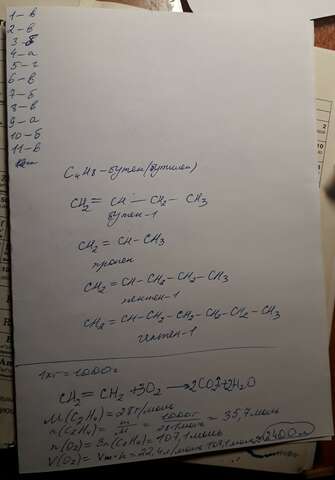 1-в
2-в
3-б
4-а
5-г
6-в
7-б
8-в
9-а
10-б
11-в
C4H8-бутен(бутилен)
CH2=CH-CH2-CH3
бутен-1
CH2=CH-CH3
пропен
CH2=CH-CH2-CH2-CH3
пентен-1
CH2=CH-CH2-CH2-CH2-CH2-CH3
гептен-1
1кг=1000г
CH2=CH2+3O2→2CO2+2H2O
M(C2H4)=28г/моль
n(C2H4)=m/M=1000г/28г/моль=35,7моль
n(O2)=3n(C2H4)=107,1моль
V(O2)=Vm·n=22,4л/моль·107,1моль=2400л